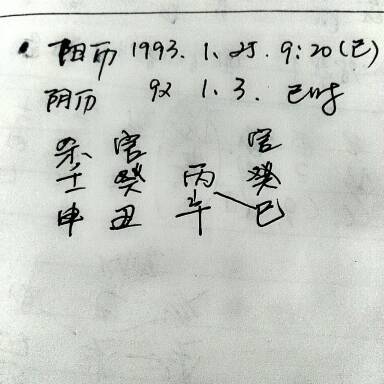 阳历 1993. 1. 25. 9:20(巳)
阴历 92 1. 3. 巳时
杀 官 官
壬 癸 丙 癸
申 丑 午 巳